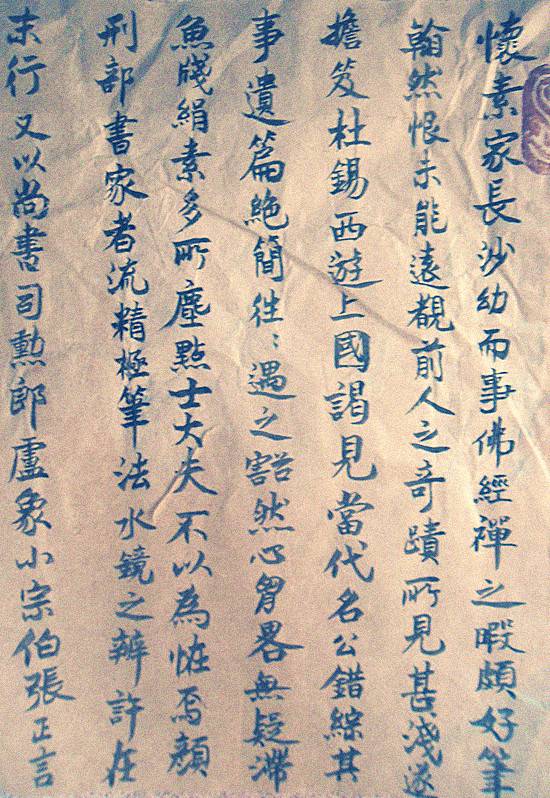 懷素家長沙幼而事佛經禪之暇頗好筆
翰然恨未能遠覩前人之奇蹟所見甚淺遂
擔笈杖錫西遊上國謁見當代名公錯綜其
事遺篇絶簡往〻遇之豁然心胷畧無疑滯
魚牋絹素多所塵點士大夫不以為恠焉顔
刑部書家者流精極筆法水鏡之辨許在
末行又以尚書司勲郎盧象小宗伯張正言